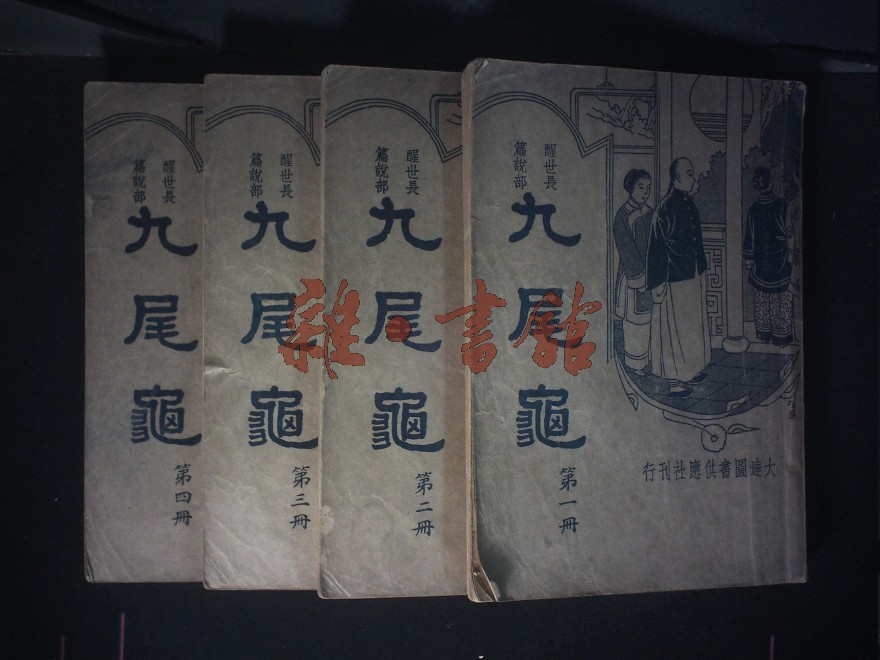 醒世長
篇說部
九尾龜
第四冊
醒世長
篇說部
九尾龜
第三冊
醒世長
篇說部
九尾龜
第二冊
醒世長
篇說部
九尾龜
第一冊
行刊社應供書圖達大
雜·書館